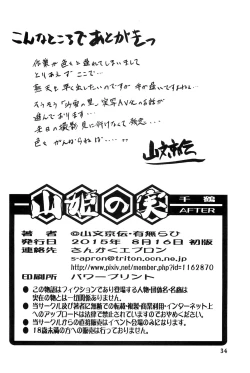 こんなところであとがきっ
作業が色々と遅れてしまいまして
とりあえずここで…
無念を早く出したいのですが 中々遅いですよねぇ…
そろそろ「山姫の実」実写AV化のお話が
進んでおります…
来日の撮影 見に行けなくて残念…
色々がんばらねば…
山文京伝
山姫の実
千鶴
AFTER
著者 ©山文京伝・有無らひ
発行日 2015年 8月16日 初版
連絡先 さんかくエプロン
s-apron@triton.ocn.ne.jp
http://www.pixiv.net/member.php?id=1162870
印刷所 パワープリント
● この物語はフィクションであり登場する人物・団体名・名称は
実在の物とは一切関係ありません。
● 当サークル及び著者に無断での転載・複製・商業利用・インターネット上
へのアップロードは法律で禁止されていますのでおやめください。
● 当サークルからの直接販売はイベント会場のみになります。
● 18歳未満の方への販売は行っておりません。
34